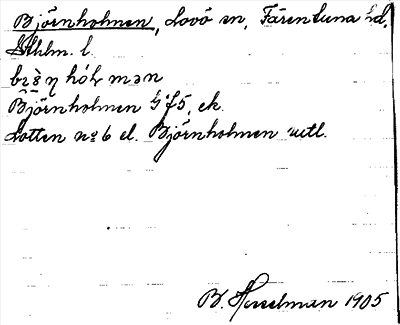 Björnholmen, Lovö sn, Färentuna hd,
Sthlm. l.
hól mən
Björnholmen G f5, ek.
Lotten no 6 el. Björnholmen utl.
B. Hesselman 1905